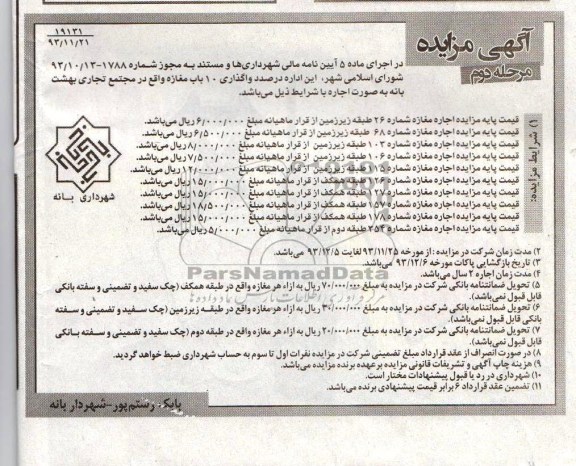 ۱۹۱۳۱
۹۳/۱۱/۲۱
آگهی مزایده
مرحله دوم
در اجرای ماده ۵ آیین نامه مالی شهرداری‌ها و مستند به مجوز شماره ۱۷۸۸-۹۳/۱۰/۱۳
شورای اسلامی شهر، این اداره درصدد واگذاری ۱۰ باب مغازه واقع در مجتمع تجاری بهشت
بانه به صورت اجاره با شرایط ذیل می‌باشد.
۱) شرایط مزایده:
قیمت پایه مزایده اجاره مغازه شماره ۲۶ طبقه زیرزمین از قرار ماهیانه مبلغ ۶/۰۰۰/۰۰۰ ریال می‌باشد.
قیمت پایه مزایده اجاره مغازه شماره ۶۸ طبقه زیرزمین از قرار ماهیانه مبلغ ۶/۵۰۰/۰۰۰ ریال می‌باشد.
قیمت پایه مزایده اجاره مغازه شماره ۱۰۳ طبقه زیرزمین از قرار ماهیانه مبلغ ۸/۰۰۰/۰۰۰ ریال می‌باشد.
قیمت پایه مزایده اجاره مغازه شماره ۱۰۶ طبقه زیرزمین از قرار ماهیانه مبلغ ۷/۵۰۰/۰۰۰ ریال می‌باشد.
قیمت پایه مزایده اجاره مغازه شماره طبقه همکف از قرار ماهیانه مبلغ ۱۲/۰۰۰/۰۰۰ ریال می‌باشد.
قیمت پایه مزایده اجاره مغازه شماره طبقه همکف از قرار ماهیانه مبلغ ۱۵/۰۰۰/۰۰۰ ریال می‌باشد.
قیمت پایه مزایده اجاره مغازه شماره طبقه همکف از قرار ماهیانه مبلغ ۱۵/۰۰۰/۰۰۰ ریال می‌باشد.
قیمت پایه مزایده اجاره مغازه شماره ۱۵۷ طبقه همکف از قرار ماهیانه مبلغ ۱۸/۵۰۰/۰۰۰ ریال می‌باشد.
قیمت پایه مزایده اجاره مغازه شماره ۱۷۸ طبقه همکف از قرار ماهیانه مبلغ ۱۵/۰۰۰/۰۰۰ ریال می‌باشد.
قیمت پایه مزایده اجاره مغازه شماره ۲۵۳ طبقه دوم از قرار ماهیانه مبلغ ۵/۰۰۰/۰۰۰ ریال می‌باشد.
شهرداری بانه
۲) مدت زمان شرکت در مزایده: از مورخه ۹۳/۱۱/۲۵ لغایت ۹۳/۱۲/۵ می‌باشد.
۳) تاریخ بازگشایی پاکات مورخه ۹۳/۱۲/۶ می‌باشد.
۴) مدت زمان اجاره ۲ سال می‌باشد.
ParsNamadData
۵) تحویل ضمانتنامه بانکی شرکت در مزایده به مبلغ ۷۰/۰۰۰/۰۰۰ ریال به ازاء هر مغازه واقع در طبقه همکف (چک سفید و تضمینی و سفته بانکی
قابل قبول نمی‌باشد).
۶) تحویل ضمانتنامه بانکی شرکت در مزایده به مبلغ ۳۰/۰۰۰/۰۰۰ ریال به ازاء هر مغازه واقع در طبقه زیرزمین (چک سفید و تضمینی و سفته
بانکی قابل قبول نمی‌باشد).
۷) تحویل ضمانتنامه بانکی شرکت در مزایده به مبلغ ۲۰/۰۰۰/۰۰۰ ریال به ازاء هر مغازه واقع در طبقه دوم (چک سفید و تضمینی و سفته بانکی
قابل قبول نمی‌باشد).
۸) در صورت انصراف از عقد قرارداد مبلغ تضمینی شرکت در مزایده نفرات اول تا سوم به حساب شهرداری ضبط خواهد گردید.
۹) هزینه چاپ آگهی و تشریفات قانونی مزایده برعهده برنده مزایده می‌باشد.
۱۰) شهرداری در رد یا قبول پیشنهادات مختار است.
۱۱) تضمین عقد قرارداد ۶ برابر قیمت پیشنهادی برنده می‌باشد.
بابک رستم‌پور-شهردار بانه